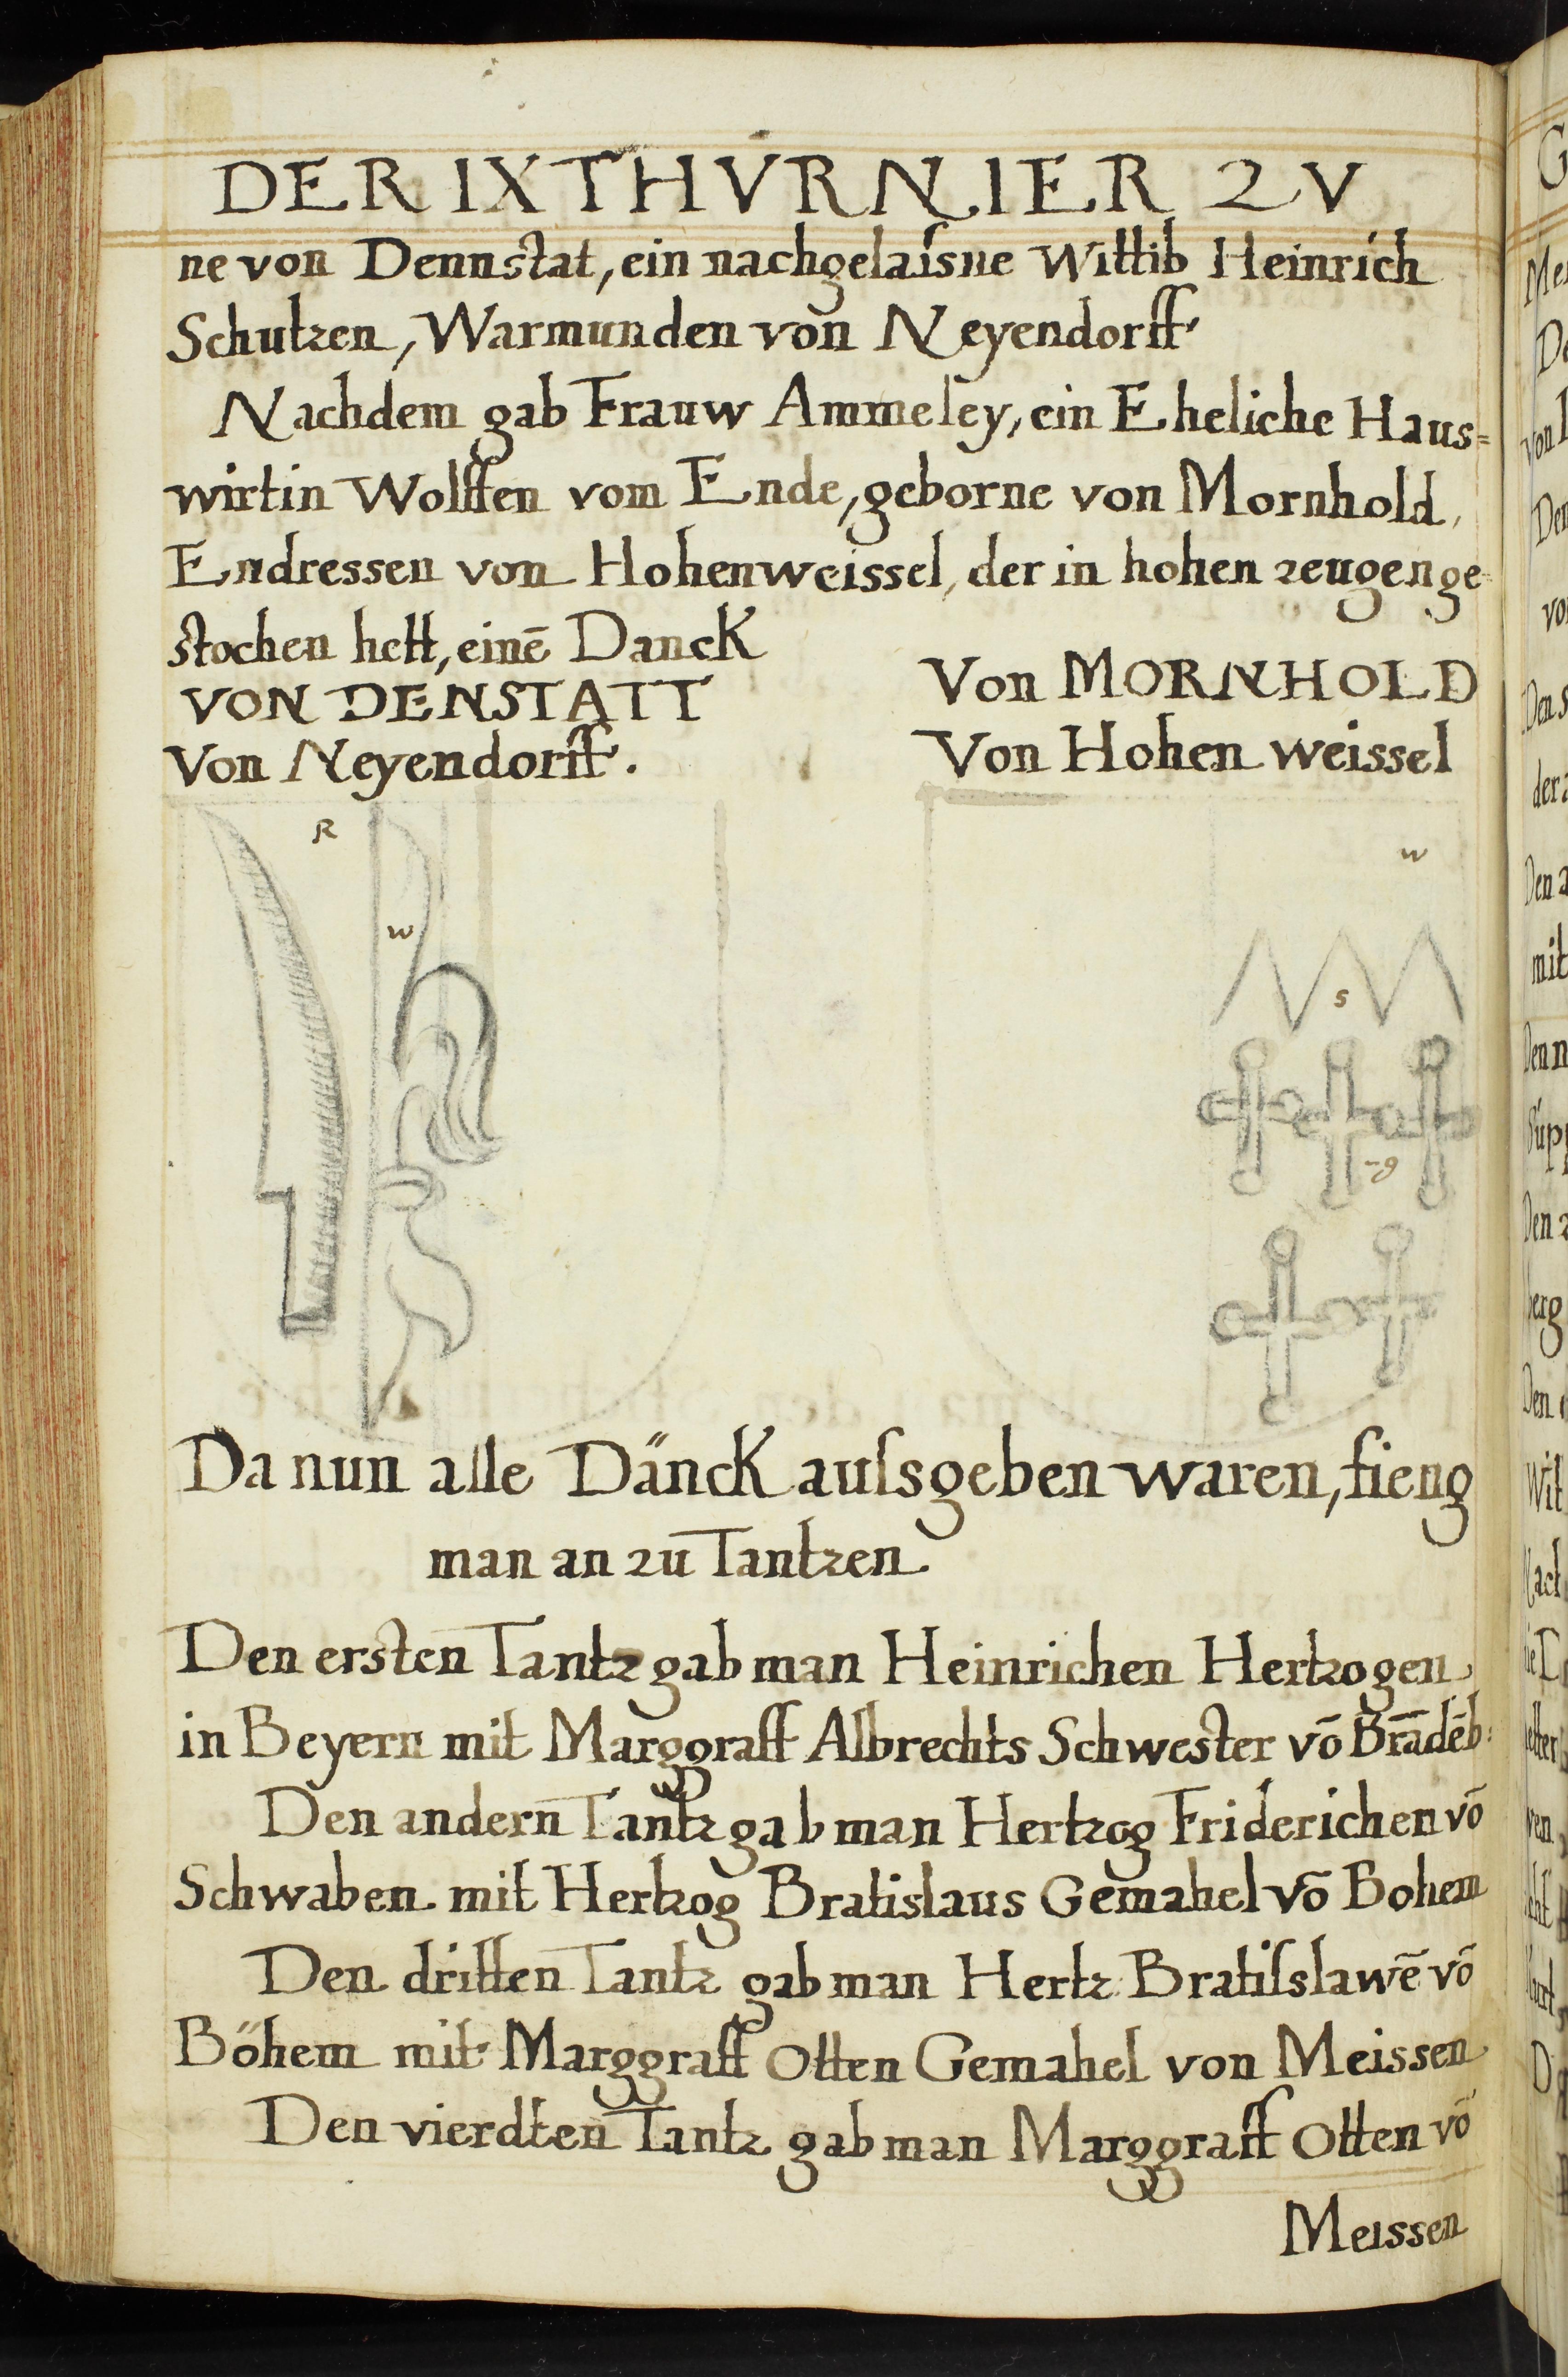 DER IX THVRNIER ZV
ne von Dennstat, ein nachgelaſsne Wittib Heinrich
Schutzen, Warmunden von Neyendorff
Nachdem gab Frauw Ammeley, ein Eheliche Haus=
wirtin Wolffen vom Ende, geborne von Mornhold,
Endressen von Hohenweissel, der in hohen zeugen ge-
stochen hett, einē Danck
VON DENSTATT
Von Neyendorff.
Von MORNHOLD
Von Hohen weissel
R
w
w
s
g
Da nun alle Dänck auſsgeben waren, fieng
man an zu Tantzen
Den ersten Tantz gab man Heinrichen Hertzogen
in Beyern mit Marggraff Albrechts Schwester vō Brādēb:
Den andern Tantz gab man Hertzog Friderichen vō
Schwaben mit Hertzog Bratislaus Gemahel vō Bohem
Den dritten Tantz gab man Hertz Bratiſslawē vō
Böhem mit Marggraff Otten Gemahel von Meissen
Den vierdten Tantz gab man Marggraff Otten vō
Meissen